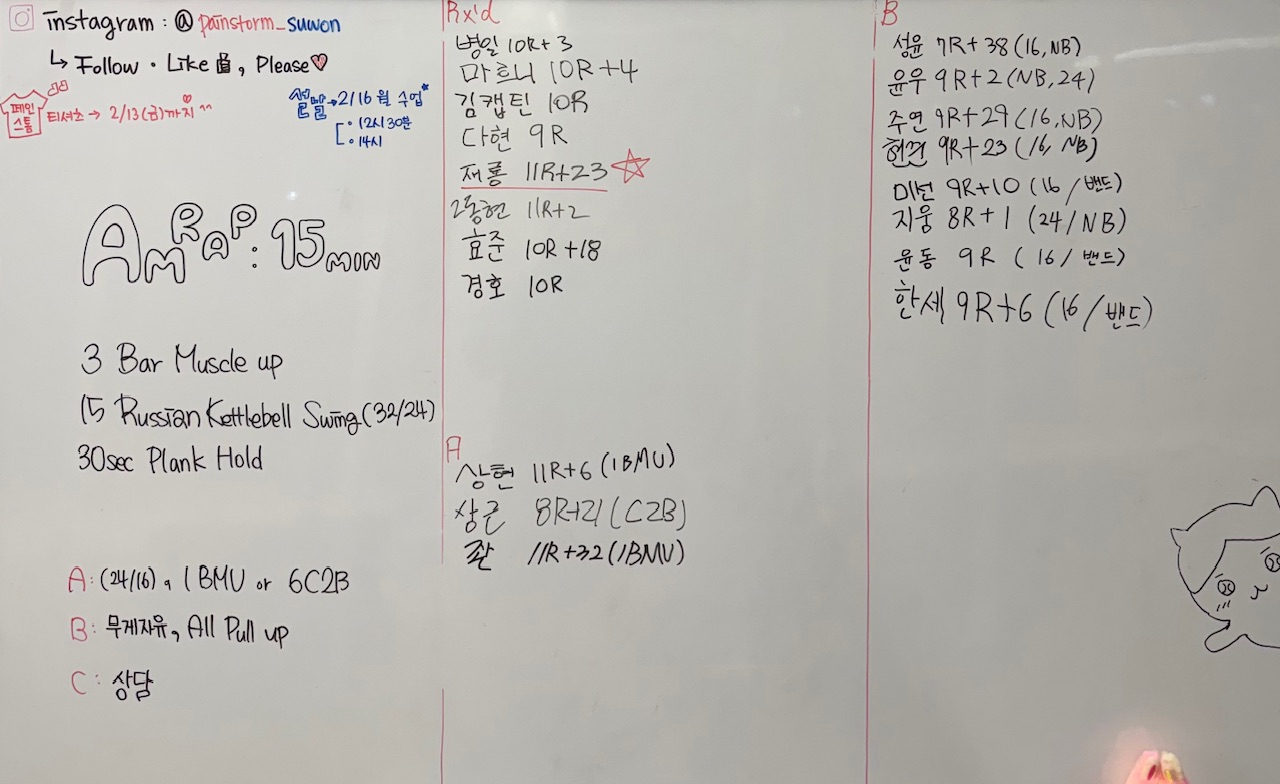 instagram : @ painstorm_suwon
↳ Follow · Like, Please♡
페인
스톰
티셔츠 → 2/13(금)까지 ^^
설날 → 2/16 월 수업*
· 12시 30분
· 14시
AMRAP : 15 MIN
3 Bar Muscle up
15 Russian Kettlebell Swing (32/24)
30sec Plank Hold
A: (24/16), 1 BMU or 6C2B
B: 무게자유, All Pull up
C: 상담
Rx'd
병일 10R+3
마르니 10R+4
김캡틴 10R
다현 9R
재룡 11R+23 ☆
2동현 11R+2
효준 10R+18
경호 10R
A
상현 11R+6 (1BMU)
상근 8R+21 (C2B)
11R+32 (1BMU)
B
성윤 7R+38 (16, NB)
윤우 9R+2 (NB, 24)
주연 9R+29 (16, NB)
9R+23 (16, NB)
9R+10 (16/밴드)
지웅 8R+1 (24/NB)
윤동 9R (16/밴드)
한세 9R+6 (16/밴드)